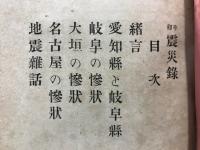 震災錄
目次
緒言
愛知縣と岐阜縣
岐阜の慘狀
大垣の慘狀
名古屋の慘狀
地震雜話